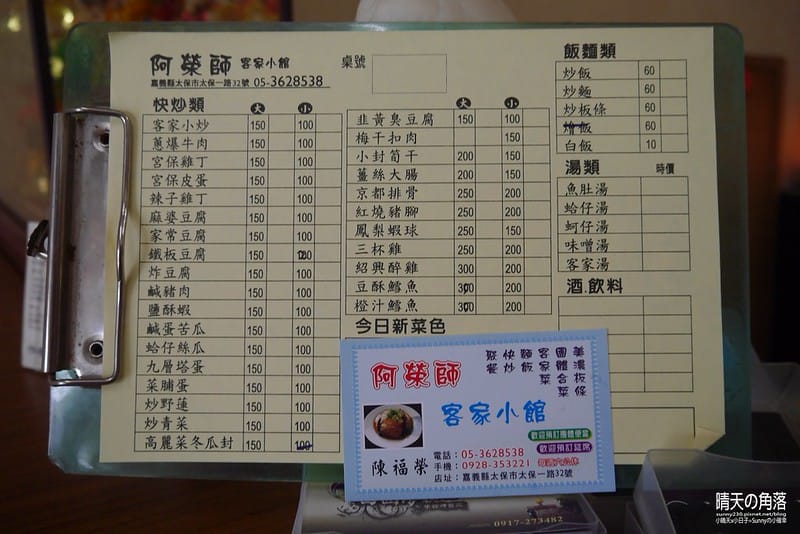 阿榮師 客家小館
嘉義縣太保市太保一路32號 05-3628538
桌號
快炒類 大 小
客家小炒 150 100
蔥爆牛肉 150 100
宮保雞丁 150 100
宮保皮蛋 150 100
辣子雞丁 150 100
麻婆豆腐 150 100
家常豆腐 150 100
鐵板豆腐 150
炸豆腐 150 100
鹹豬肉 150 100
鹽酥蝦 150 100
鹹蛋苦瓜 150 100
蛤仔絲瓜 150 100
九層塔蛋 150 100
菜脯蛋 150 100
炒野蓮 150 100
炒青菜 150 100
高麗菜冬瓜封 150 100
大 小
韭黃臭豆腐 150 100
梅干扣肉 150
小封筍干 200 150
薑絲大腸 200 150
京都排骨 250 200
紅燒豬腳 250 200
鳳梨蝦球 250 150
三杯雞 250 200
紹興醉雞 300 200
豆酥鱈魚 300 200
橙汁鱈魚 300 200
今日新菜色
飯麵類
炒飯 60
炒麵 60
炒板條 60
燴飯 60
白飯 10
湯類 時價
魚肚湯
蛤仔湯
蚵仔湯
味噌湯
客家湯
酒.飲料
阿榮師
客家小館
美濃板條
團體合菜
客家菜
麵飯
快炒
聚餐
歡迎預訂團體便當
歡迎預訂筵席
陳福榮
電話：05-3628538
手機：0928-353221 每週六公休
店址：嘉義縣太保市太保一路32號
0917-273482
晴天的角落
sunny230.pixnet.net/blog
小晴天x小日子=Sunnyの小確幸